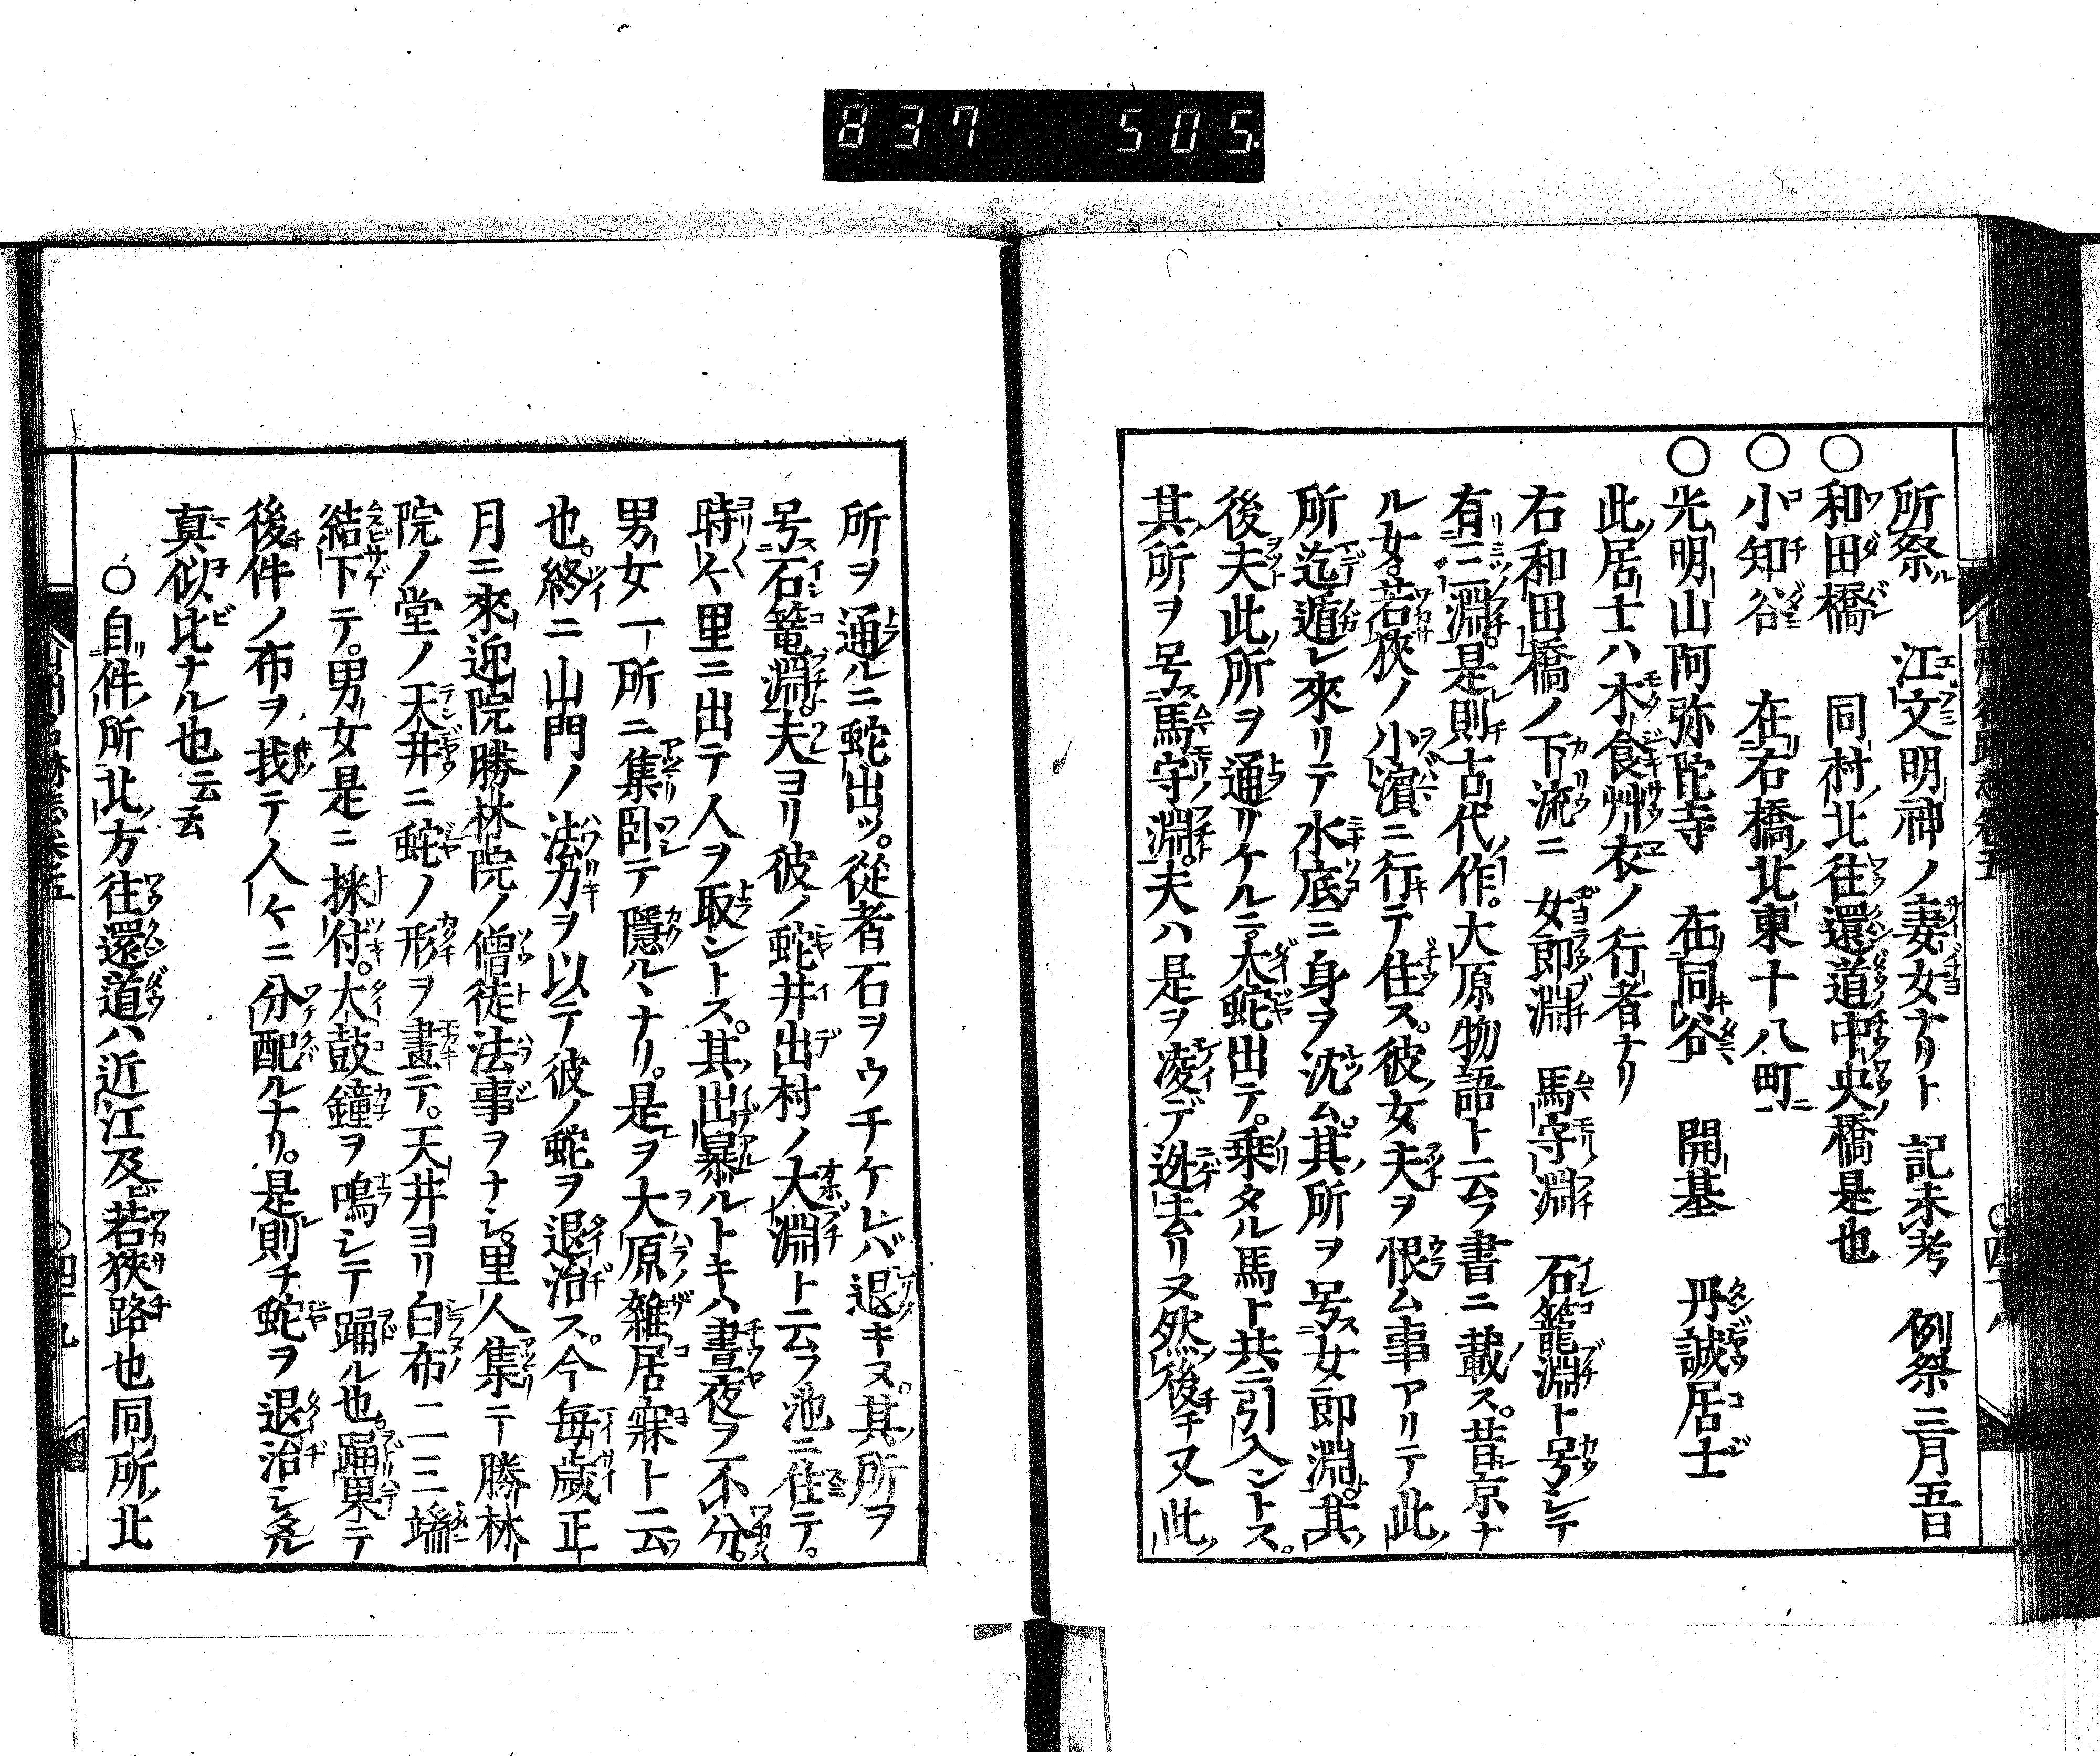 837 505
所祭ル 江文明神ノ妻女ナリト 記未考 例祭三月五日
○和田橋 同村ノ北往還道中央ノ橋是也
○小知谷 在右橋ノ北東十八町ニ
○光明山阿弥陀寺 在同谷 開基 丹誠居士
此ノ居士ハ木食州衣ノ行者ナリ
右和田橋ノ下流ニ 女郎淵 馬守淵 石籠淵ト号シテ
有三淵。是則古代ノ作。大原物語ト云フ書ニ載ス。昔京ナ
ル女。若狹ノ小濵ニ行テ住ス。彼女夫ヲ恨ム事アリテ此ノ
所迄遁レ來リテ水底ニ身ヲ沈ム。其所ヲ号ス女郎淵。其ノ
後夫此ノ所ヲ通リケルニ。大蛇出テ。乗タル馬ト共ニ引入ントス。
其ノ所ヲ号ス馬守淵。夫ハ是ヲ凌デ迯去リヌ然後チ又此ノ
所ヲ通ルニ蛇出ツ。從者石ヲウチケレバ退キヌ。其ノ所ヲ
号ス石籠淵。夫ヨリ彼ノ蛇井出村ノ大淵ト云フ池ニ住テ。
時々里ニ出テ人ヲ取ントス。其出暴ルトキハ晝夜ヲ不分。
男女一所ニ集臥テ隱ルヽナリ。是ヲ大原雜居寐ト云フ
也。終ニ山門ノ法力ヲ以テ彼ノ蛇ヲ退治ス。今毎歳正
月ニ來迎院勝林院ノ僧徒法事ヲナシ。里人集テ勝林
院ノ堂ノ天井ニ蛇ノ形ヲ畫テ。天井ヨリ白布二三端
結下テ。男女是ニ採付。大鼓鐘ヲ鳴シテ踊ル也。踊果テ
後件ノ布ヲ裁テ人々ニ分配ルナリ。是則チ蛇ヲ退治シタル
真似比ナル也云云
○自件ノ所北ノ方往還道ハ近江及ビ若狹路也同所ノ北